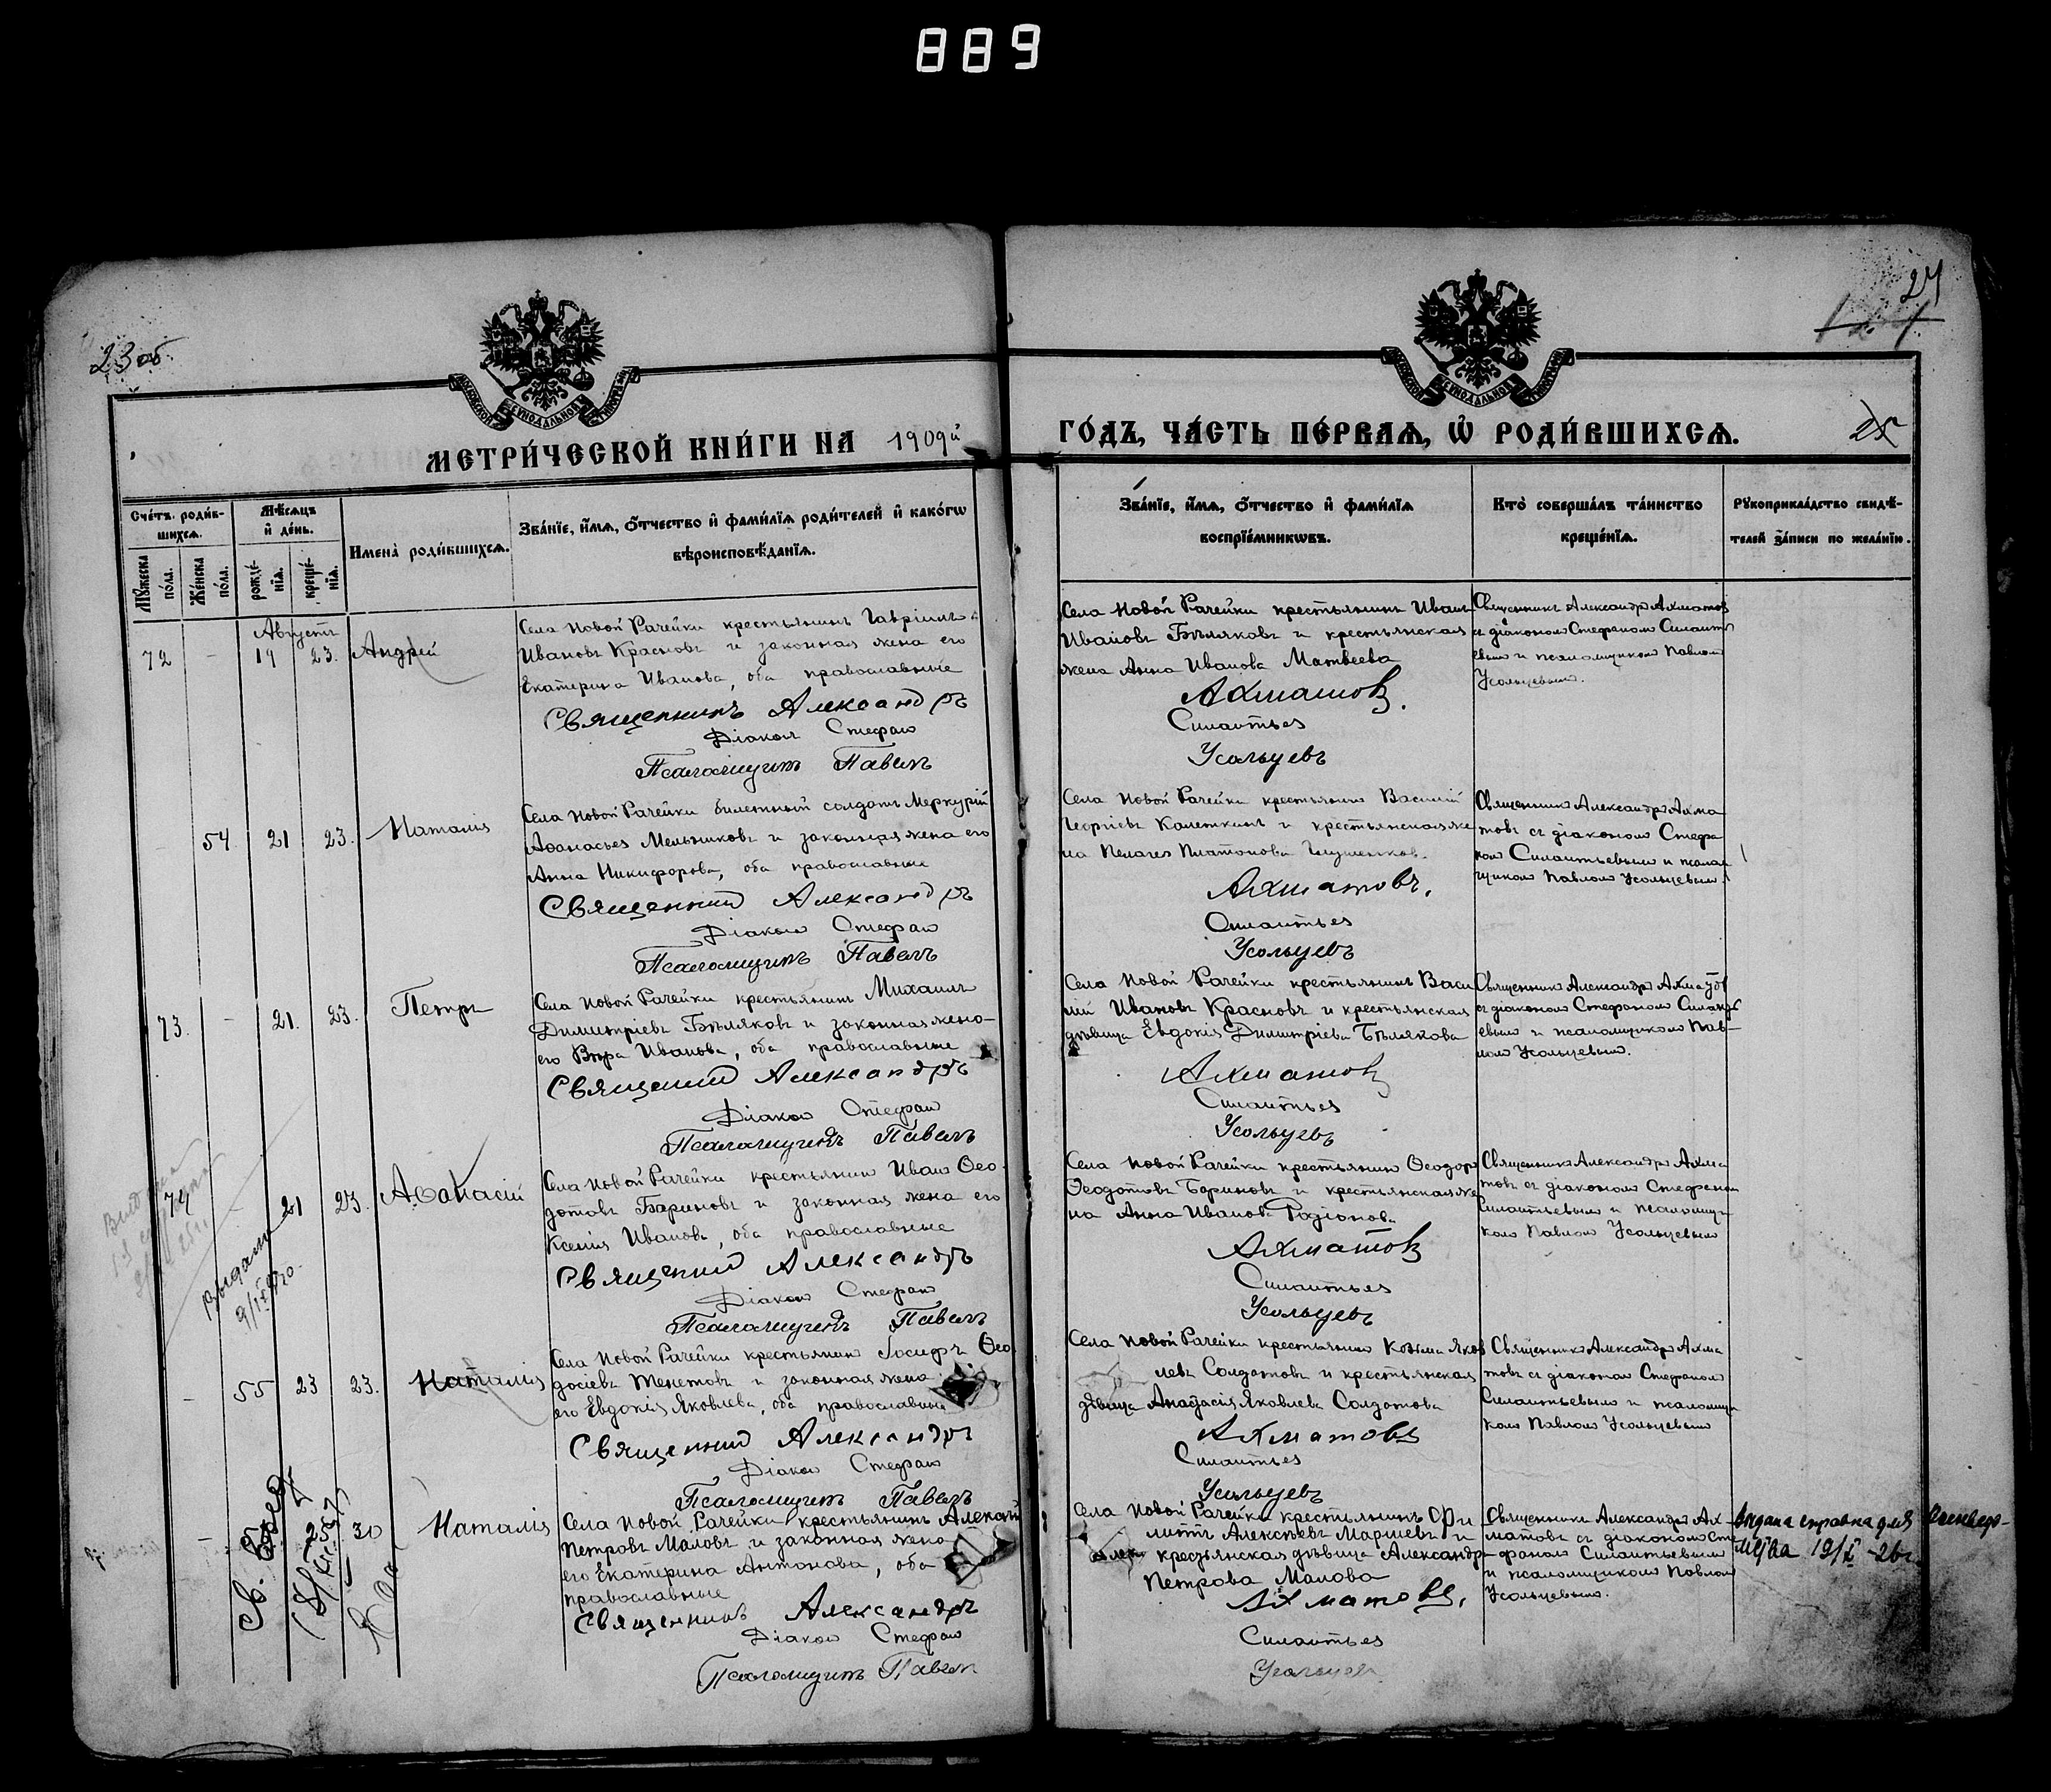 889
23 об
24
МЕТРИ́ЧЕСКОЙ КНИ́ГИ НА 1909й
ГО́ДЪ, ЧА́СТЬ ПЕ́РВАѦ, Ѽ РОДИ́ВШИХСѦ.
25
Сче́тъ роди́в-
шихсѧ.
Мѣ́сѧцъ
и҆ де́нь.
Имена̀ роди́вшихсѧ.
Зва́нїе, и҆́мѧ, ѻ҆́тчество и҆ фами́лїѧ роди́телей и҆ како́гѡ
вѣроисповѣ́данїѧ.
Мꙋ́жеска
по́ла.
Же́нска
по́ла.
рожде́-
нїѧ.
креще́-
нїѧ.
Зва́нїе, и҆́мѧ, ѻ҆́тчество и҆ фами́лїѧ
воспрїе́мникѡвъ.
Кто̀ соверша́лъ та́инство
креще́нїѧ.
Рꙋкоприкла́дство свидѣ́-
телей за́писи по жела́нїю.
Августъ
72 - 19 23. Андрей
Села Новой Рачейки крестьянинъ Гавріилъ
Ивановъ Красновъ и законная жена его
Екатерина Иванова, оба православные
Священникъ Александръ
Діаконъ Стефанъ
Псаломщикъ Павелъ
Села Новой Рачейки крестьянинъ Иванъ
Ивановъ Бѣляковъ и крестьянская
жена Анна Иванова Матвеева
Ахматовъ.
Силантьев
Усольцевъ
Священникъ Александръ Ахматов
съ діакономъ Стефаномъ Силанть
евымъ и псаломщикомъ Павломъ
Усольцевымъ.
- 54 21 23. Наталія
Села Новой Рачейки билетный солдатъ Меркурій
Аѳанасьев Мельниковъ и законная жена его
Анна Никифорова, оба православные
Священникъ Александръ
Діаконъ Стефанъ
Псаломщикъ Павелъ
Села Новой Рачейки крестьянинъ Василій
Георгіевъ Калеткинъ и крестьянская же
на Пелагея Платонова
Ахматовъ.
Силантьев
Усольцевъ
Священникъ Александръ Ахма
товъ съ діакономъ Стефа
номъ Силантьевымъ и псалом
щикомъ Павломъ Усольцевымъ.
73. - 21. 23. Петръ
Села Новой Рачейки крестьянинъ Михаилъ
Димитріевъ Бѣляковъ и законная жена
его Вѣра Иванова, оба православные
Священникъ Александръ
Діаконъ Стефанъ
Псаломщикъ Павелъ
Села Новой Рачейки крестьянинъ Васи
лій Ивановъ Красновъ и крестьянская
дѣвица Евдокія Димитріева Бѣлякова
Ахматовъ
Силантьев
Усольцевъ
Священникъ Александръ Ахматов
съ діакономъ Стефаномъ Силанть
евымъ и псаломщикомъ Пав-
ломъ Усольцевымъ.
74 - 21 23. Аѳанасій
Выдана
9/IX 20.
Села Новой Рачейки крестьянинъ Иванъ Ѳео
дотовъ Бариновъ и законная жена его
Ксенія Иванова, оба православные
Священникъ Александръ
Діаконъ Стефанъ
Псаломщикъ Павелъ
Села Новой Рачейки крестьянинъ Ѳеодоръ
Ѳеодотовъ Бариновъ и крестьянская же
на Анна Иванова Радіонова
Ахматовъ
Силантьев
Усольцевъ
Священникъ Александръ Ахма
товъ съ діакономъ Стефаномъ
Силантьевымъ и псаломщи
комъ Павломъ Усольцевымъ
- 55 23 23. Наталія
Села Новой Рачейки крестьянинъ Іосифъ Ѳео
досіевъ Тенетовъ и законная жена
его Евдокія Яковлева, оба православные
Священникъ Александръ
Діаконъ Стефанъ
Псаломщикъ Павелъ
Села Новой Рачейки крестьянинъ Козьма Яков
левъ Солдатовъ и крестьянская
дѣвица Анастасія Яковлева Солдатова
Ахматовъ
Силантьев
Усольцевъ
Священникъ Александръ Ахма
товъ съ діакономъ Стефаномъ
Силантьевымъ и псаломщи
комъ Павломъ Усольцевымъ
- 30 Наталія
Села Новой Рачейки крестьянинъ Алексѣй
Петровъ Маловъ и законная жена
его Екатерина Антонова, оба
православные
Священникъ Александръ
Діаконъ Стефанъ
Псаломщикъ Павелъ
Села Новой Рачейки крестьянинъ
Алексѣевъ и
крестьянская дѣвица Александра
Петрова Малова
Ахматовъ.
Силантьев
Усольцевъ
Священникъ Александръ Ах-
матовъ съ діакономъ Сте
фаномъ Силантьевымъ
и псаломщикомъ Павломъ
Усольцевымъ.
Выдана справка для
19/X -26 г.